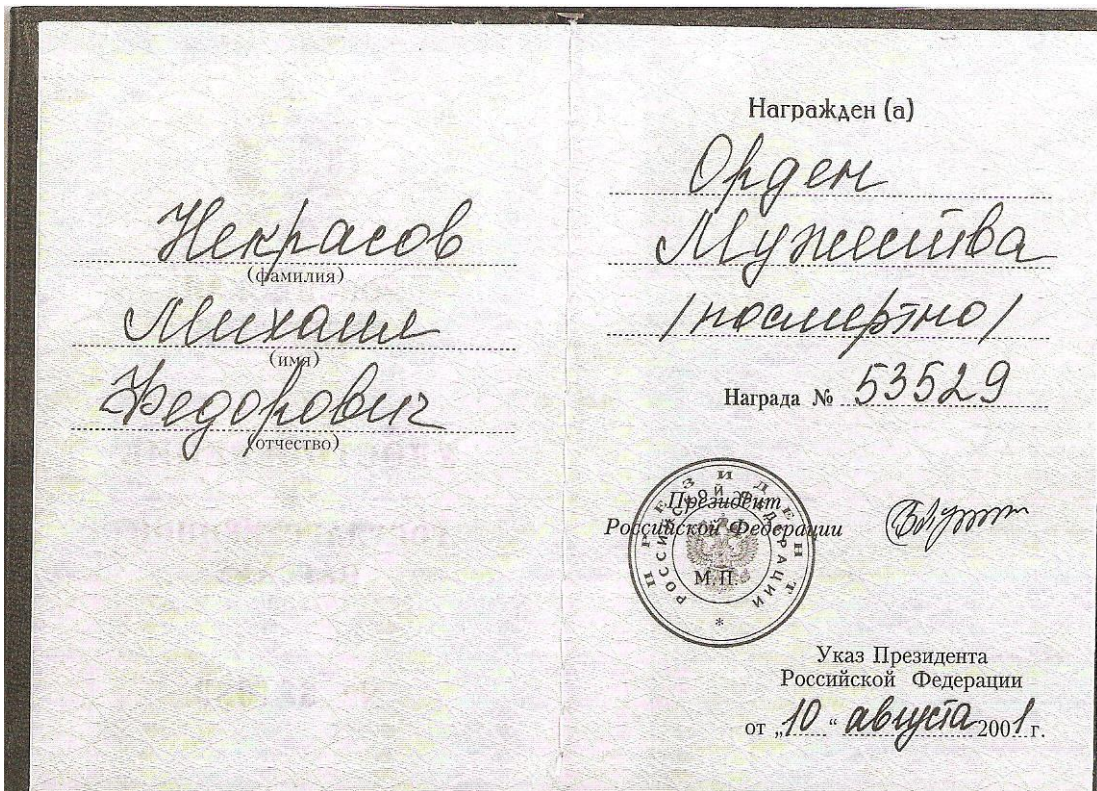 Некрасов
(фамилия)
Михаил
(имя)
Федорович
(отчество)
Награжден (а)
Орден
Мужества
/посмертно/
Награда № 53529
Президент
Российской Федерации
М.П.
ПРЕЗИДЕНТ
РОССИЙСКОЙ ФЕДЕРАЦИИ
*
Указ Президента
Российской Федерации
от „10“ августа 2001 г.